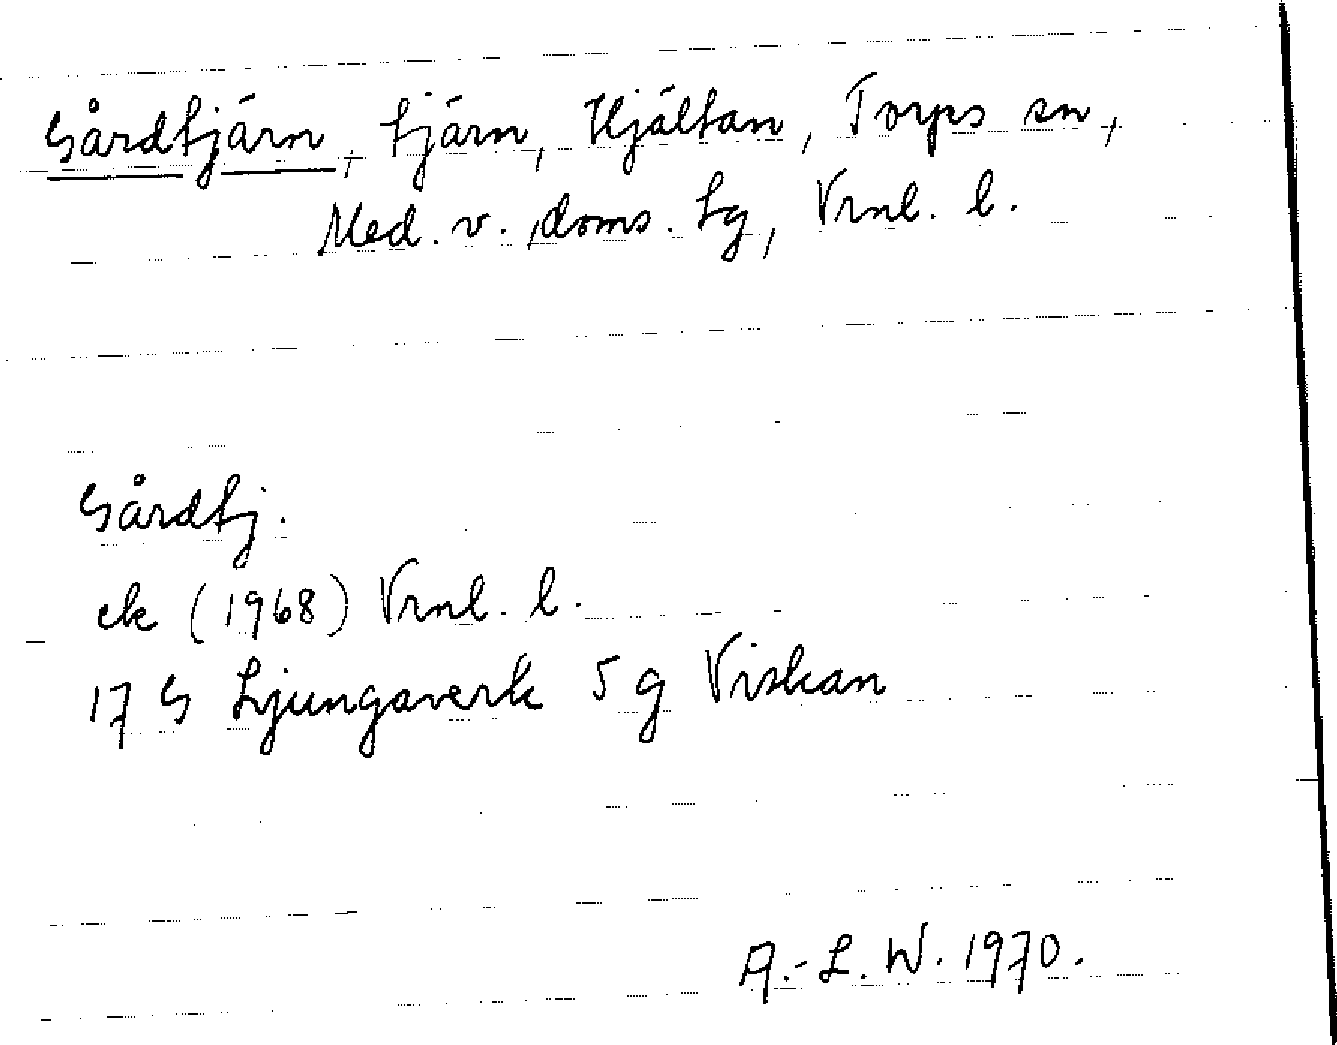 Gårdtjärn, tjärn, Hjältan, Torps sn,
Med. v. doms. tg, Vrnl. l.
Gårdtj.
ek (1968) Vrnl. l.
17 G Ljungaverk 5 g Viskan
A.-L. W. 1970.